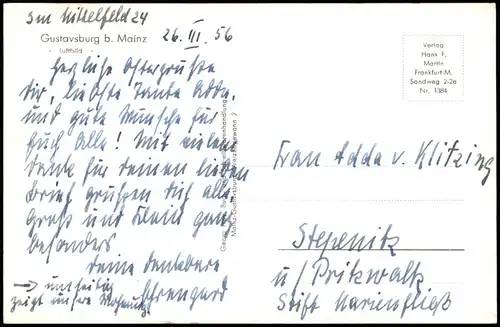 Im Mittelfeld 24
Gustavsburg b. Mainz
26. III. 56
Luftbild
Herzliche Ostergrüße
Dir, liebste Tante Adda,
und gute Wünsche für
Euch Alle! Mit vielem
Dank für deinen lieben
Brief grüßen Dich alle
Groß und Klein ganz
besonders
deine dankbare
Ehrengard
→ umseitig
zeigt unsere Wohnung.
Verlag
Hans F.
Martin
Frankfurt/M.
Sandweg 2-2a
Nr. 1384
Frau Adda v. Klitzing
Stepenitz
u/ Pritzwalk
Stift Marienfließ